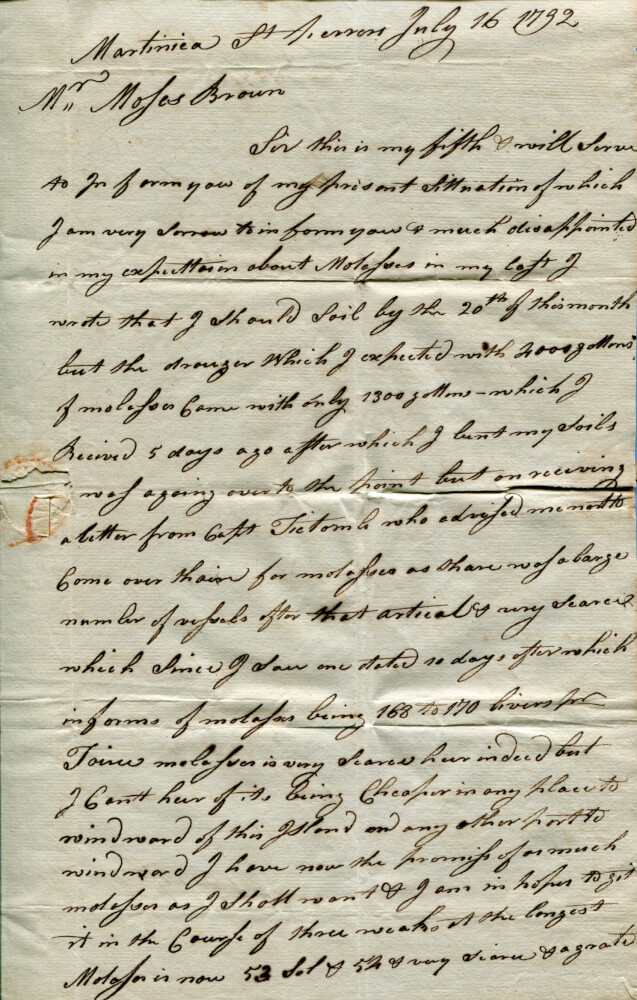 Martinica St Pierrers July 16 1792
Mr,, Moses Brown
Sir this is my fifth & will Serve
to In form yow of my present Sittuation of which
I am very Sorrow to in form yow & much disappointed
in my expecttaion about Molasses in my last I
wrote that I Should Sail by the 20th of this month
but the drouger Which I expected with 4000 gallons
of molasses Came with only 1300 gallons - which I
Recived 5 days ago after which I bent my Sails
& was agoing over to the point but on receiving
a letter from Capt Titcomb who advised me not to
Come over thair for molasses as thare was a large
number of vessels after that artical & very Scarce
which Since I Saw one dated 10 days after which
informs of molasses being 168 to 170 livers pr
Teirce molasses is very Scarce heir indeed but
I Cantt heir of its being Cheaper in any place to
windward of this Island and any other part to
windward I have now the promiss of as much
molasses as I Shall want & I am in hopes to git
it in the Course of three weaks at the longest
Molasses is now 53 Sol & 54 & very Scarce & a grate